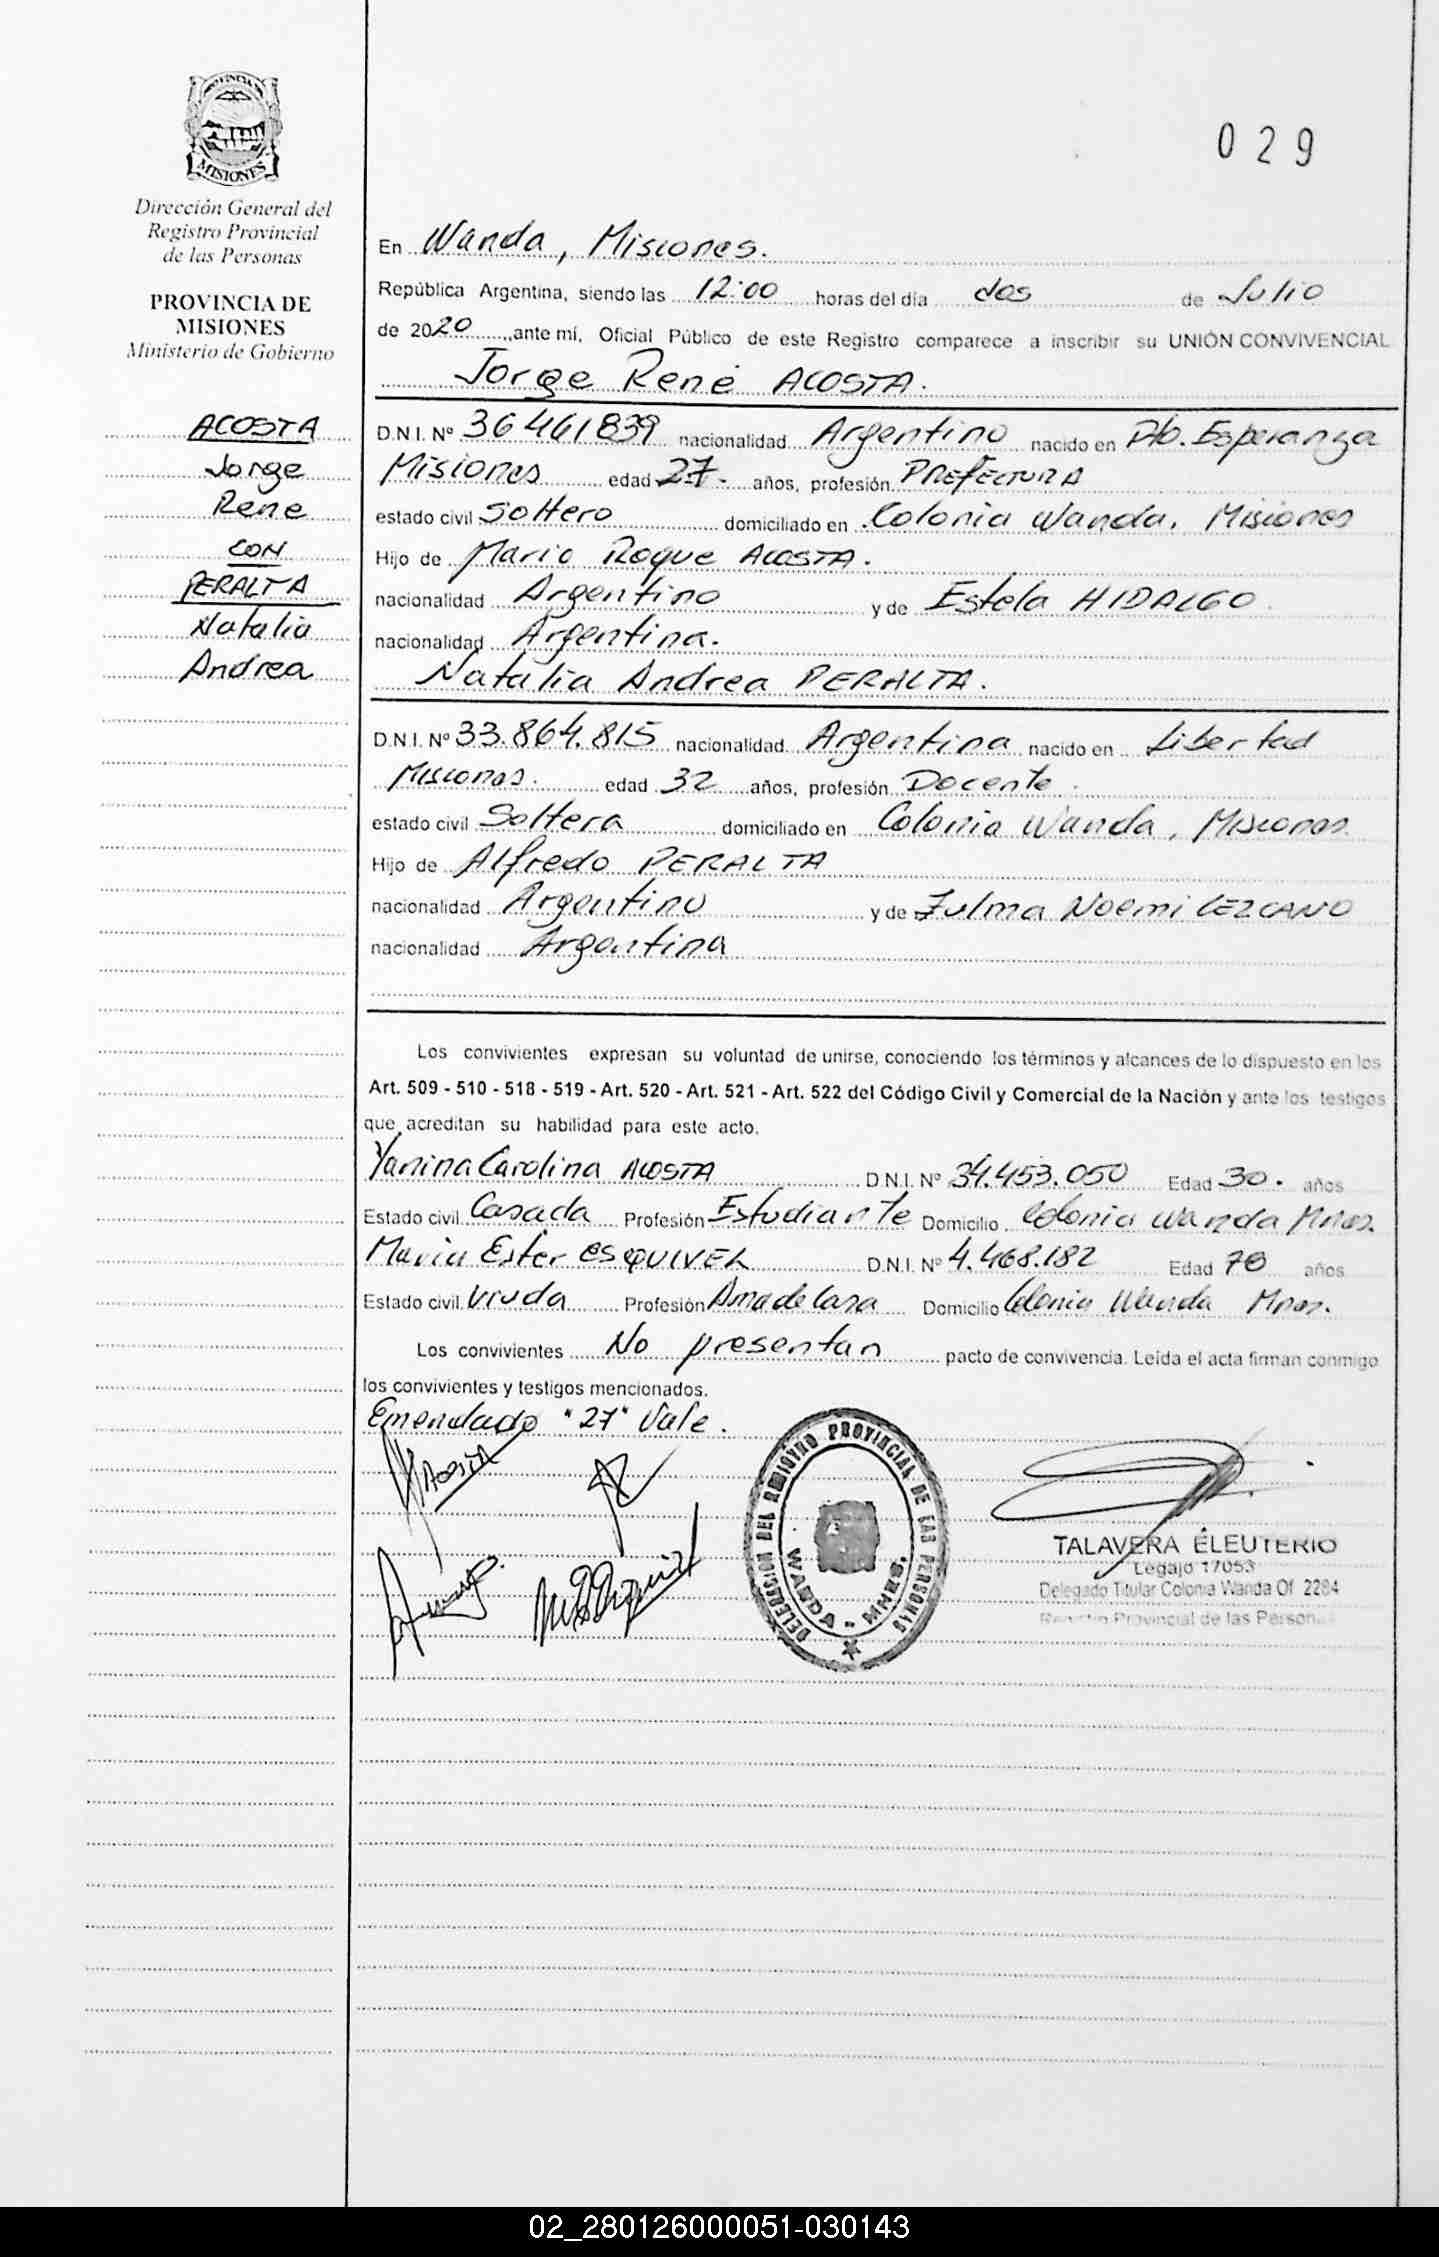 029
PROVINCIA DE
MISIONES
Dirección General del
Registro Provincial
de las Personas
PROVINCIA DE
MISIONES
Ministerio de Gobierno
ACOSTA
Jorge
Rene
CON
PERALTA
Natalia
Andrea
En Wanda, Misiones.
República Argentina, siendo las 12:00 horas del día dos de Julio
de 2020 ante mí, Oficial Público de este Registro comparece a inscribir su UNIÓN CONVIVENCIAL
Jorge René ACOSTA.
D.N.I. Nº 36461839 nacionalidad Argentino nacido en Pto. Esperanza
Misiones edad 27. años, profesión PREFECTURA
estado civil Soltero domiciliado en Colonia Wanda, Misiones
Hijo de Mario Roque ACOSTA.
nacionalidad Argentino y de Estela HIDALGO
nacionalidad Argentina.
Natalia Andrea PERALTA.
D.N.I. Nº 33.864.815 nacionalidad Argentina nacido en Libertad
Misiones. edad 32 años, profesión Docente.
estado civil Soltera domiciliado en Colonia Wanda, Misiones.
Hijo de Alfredo PERALTA
nacionalidad Argentino y de Zulma Noemi LEZCANO
nacionalidad Argentina
Los convivientes expresan su voluntad de unirse, conociendo los términos y alcances de lo dispuesto en los
Art. 509 - 510 - 518 - 519 - Art. 520 - Art. 521 - Art. 522 del Código Civil y Comercial de la Nación y ante los testigos
que acreditan su habilidad para este acto.
Yanina Carolina ACOSTA D.N.I. Nº 34.453.050 Edad 30. años
Estado civil Casada Profesión Estudiante Domicilio Colonia Wanda Mnes.
Maria Ester ESQUIVEL D.N.I. Nº 4.468.182 Edad años
Estado civil Viuda Profesión Ama de Casa Domicilio Colonia Wanda Mnes.
Los convivientes No presentan pacto de convivencia. Leída el acta firman conmigo
los convivientes y testigos mencionados.
Emendado "27" Vale.
DELEGACION DEL REGISTRO PROVINCIAL DE LAS PERSONAS
WANDA - MNES.
TALAVERA ELEUTERIO
Legajo 17053
Delegado Titular Colonia Wanda Of 2284
Registro Provincial de las Person
02_280126000051-030143